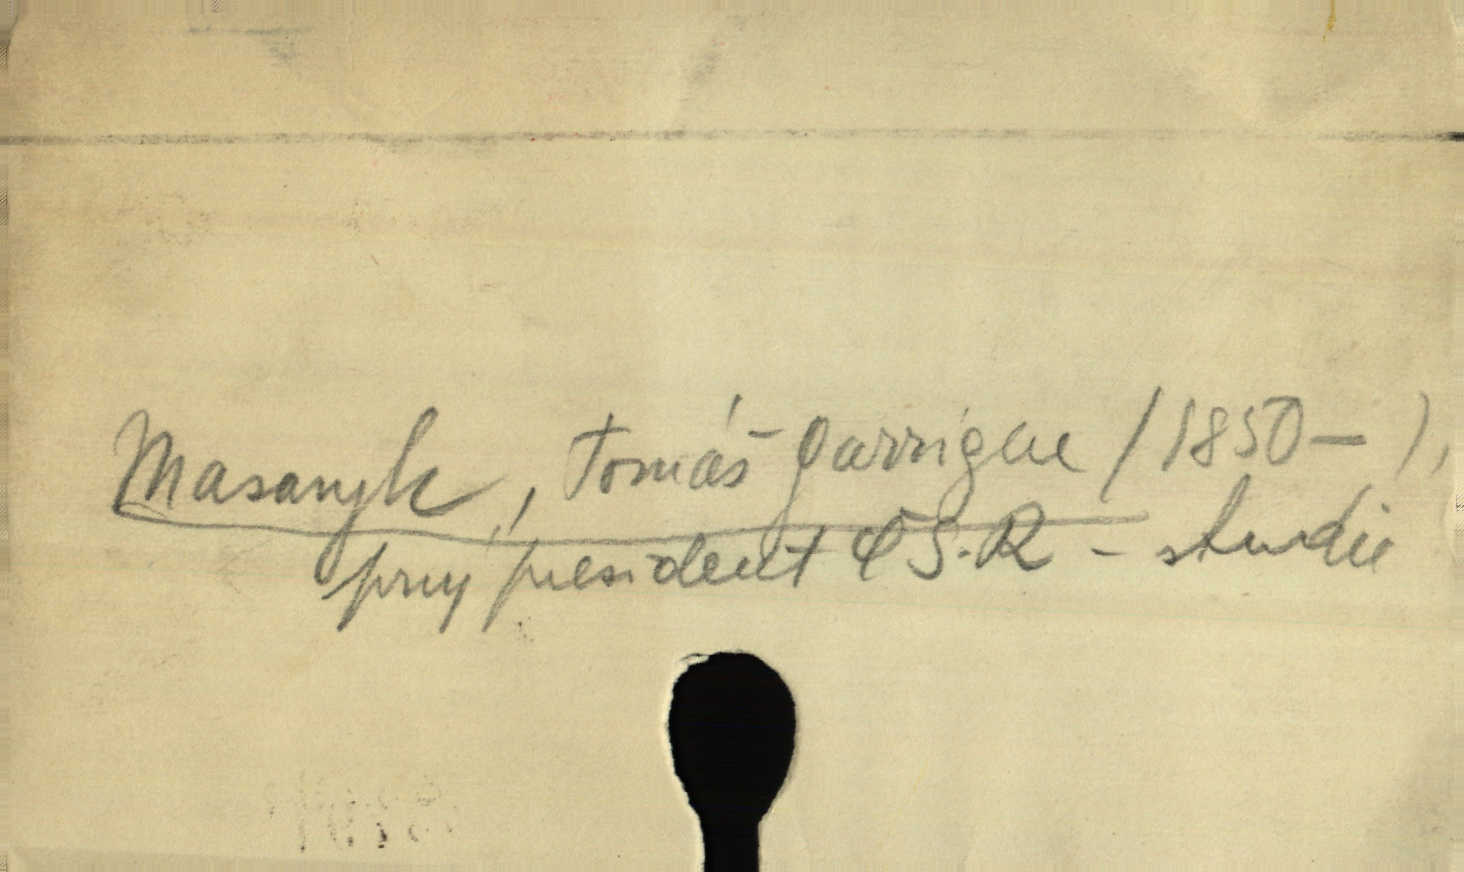 Masaryk, Tomáš Garrigue /1850— ),
prvý president ČS.R - studie